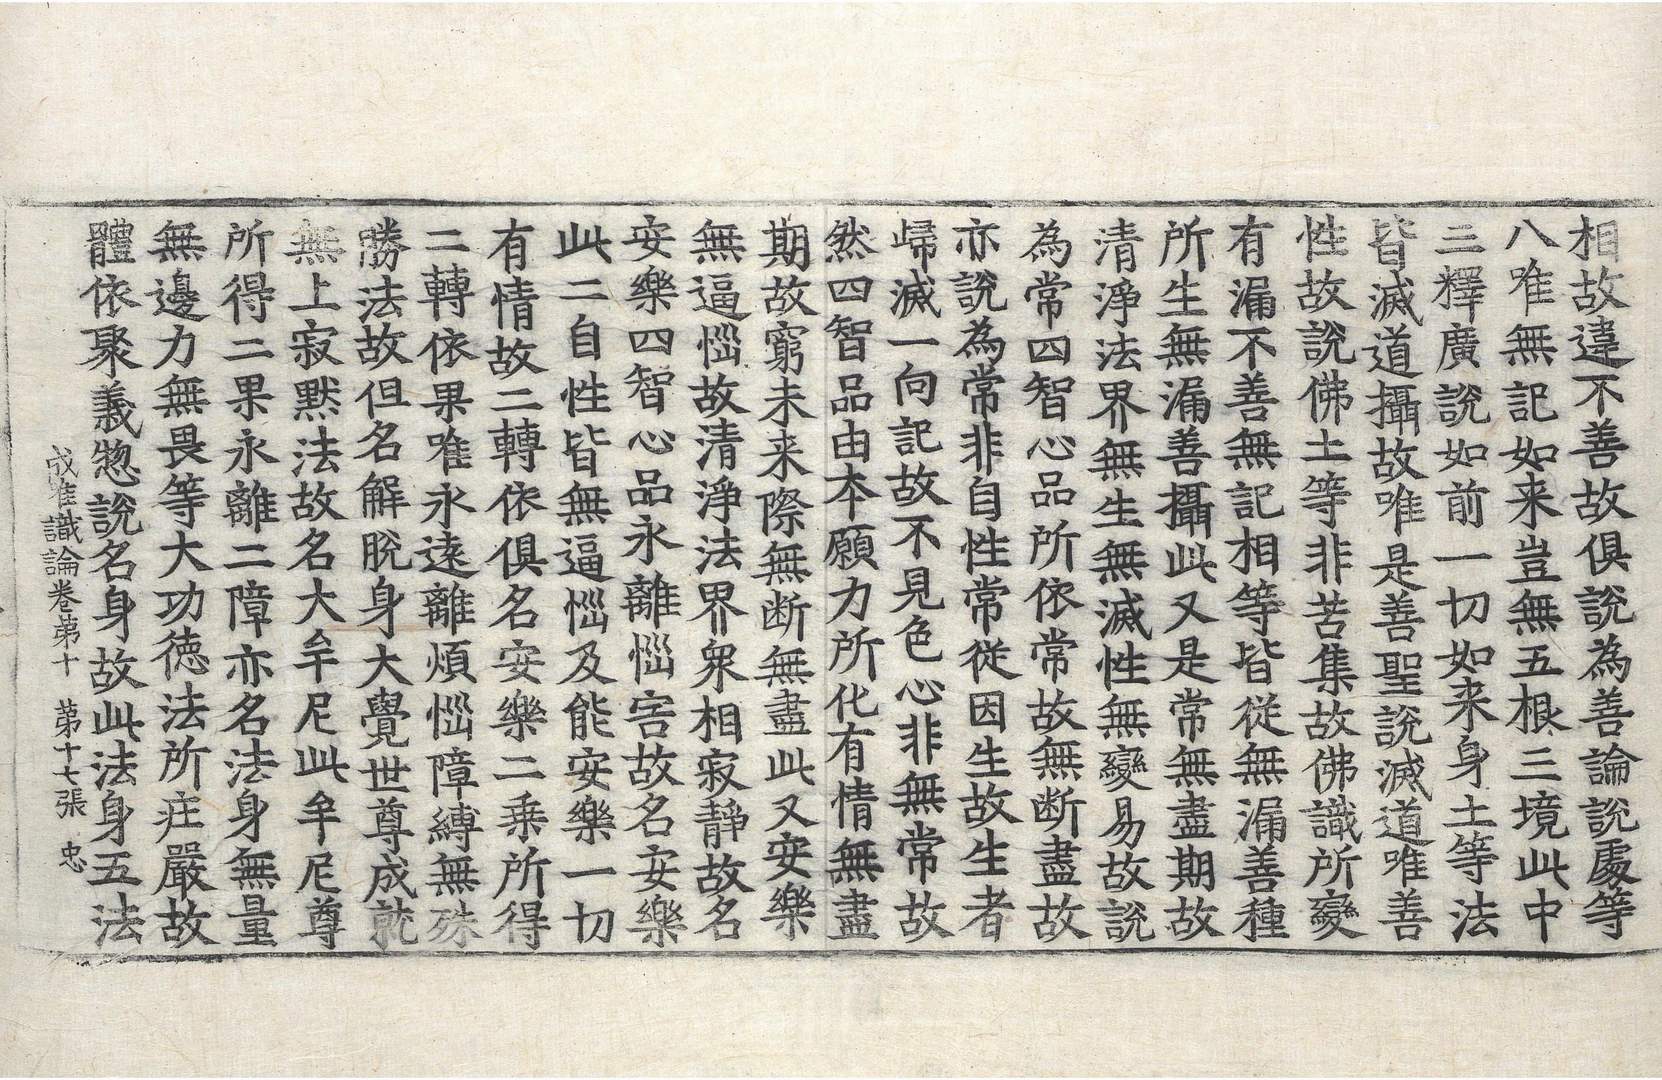 相故違不善故俱說為善論說處等
八唯無記如来豈無五根三境此中
三釋廣說如前一切如来身土等法
皆滅道攝故唯是善聖說滅道唯善
性故說佛土等非苦集故佛識所變
有漏不善無記相等皆從無漏善種
所生無漏善攝此又是常無盡期故
清淨法界無生無滅性無變易故說
為常四智心品所依常故無断盡故
亦說為常非自性常從因生故生者
歸滅一向記故不見色心非無常故
然四智品由本願力所化有情無盡
期故窮未来際無断無盡此又安樂
無逼惱故清淨法界衆相寂靜故名
安樂四智心品永離惱害故名安樂
此二自性皆無逼惱及能安樂一切
有情故二轉依俱名安樂二乗所得
二轉依果唯永遠離煩惱障縛無殊
勝法故但名解脫身大覺世尊成就
無上寂默法故名大牟尼此牟尼尊
所得二果永離二障亦名法身無量
無邊力無畏等大功德法所庄嚴故
體依聚義惣說名身故此法身五法
成唯識論卷第十　第十七張　忠